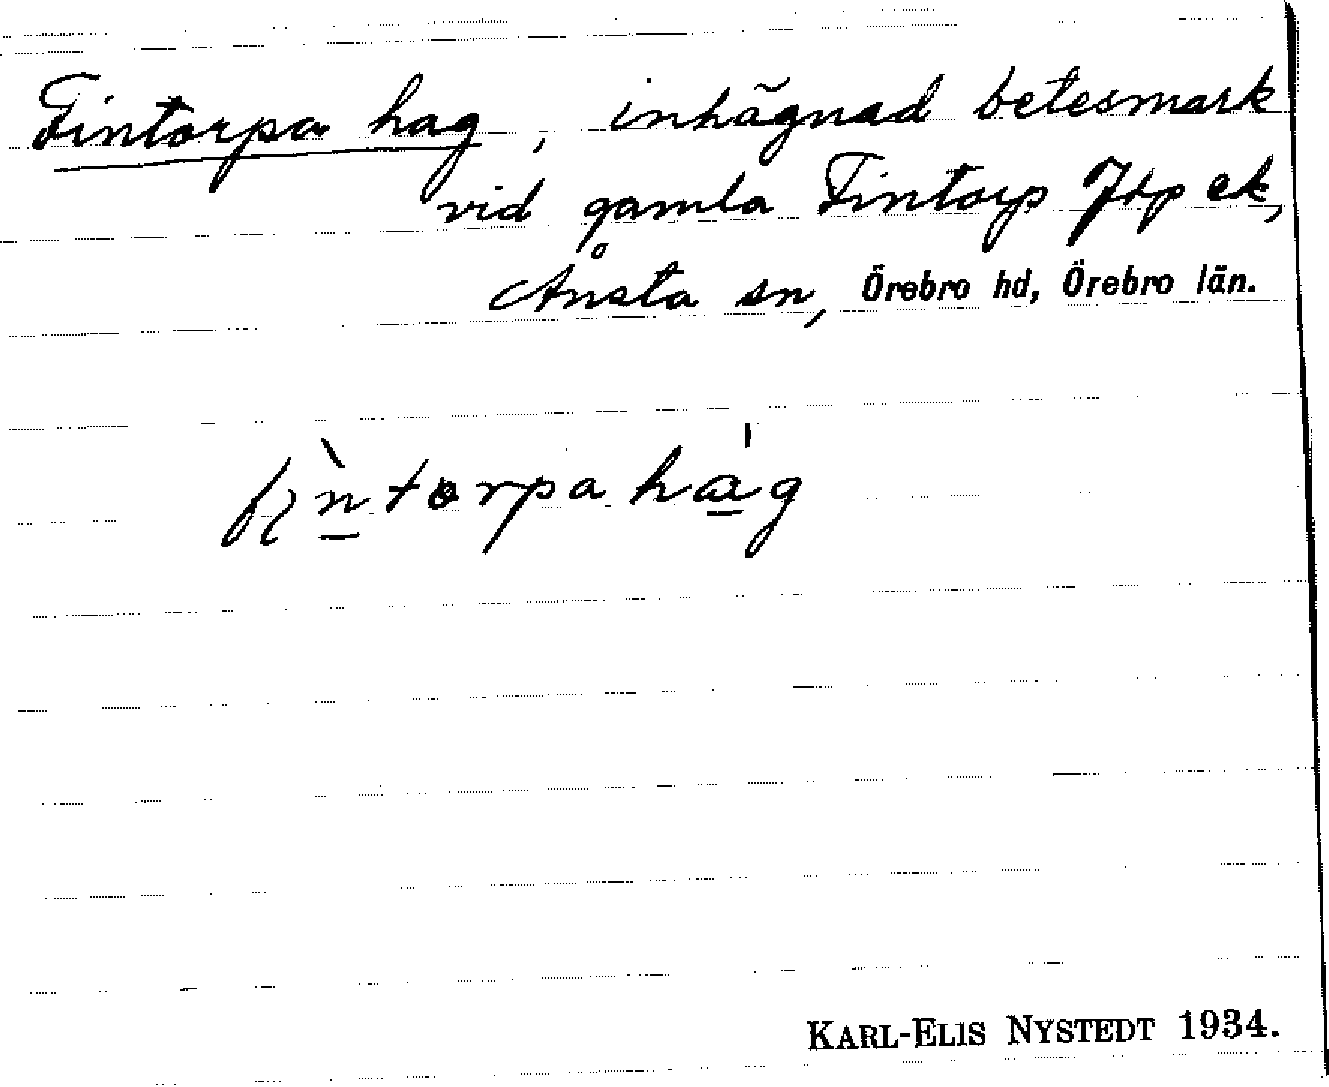 Fintorpa hag, inhägnad betesmark
vid gamla Fintorp Jtp ek,
Ånsta sn, Örebro hd, Örebro län.
fìntorpa hág
KARL-ELIS NYSTEDT 1934.